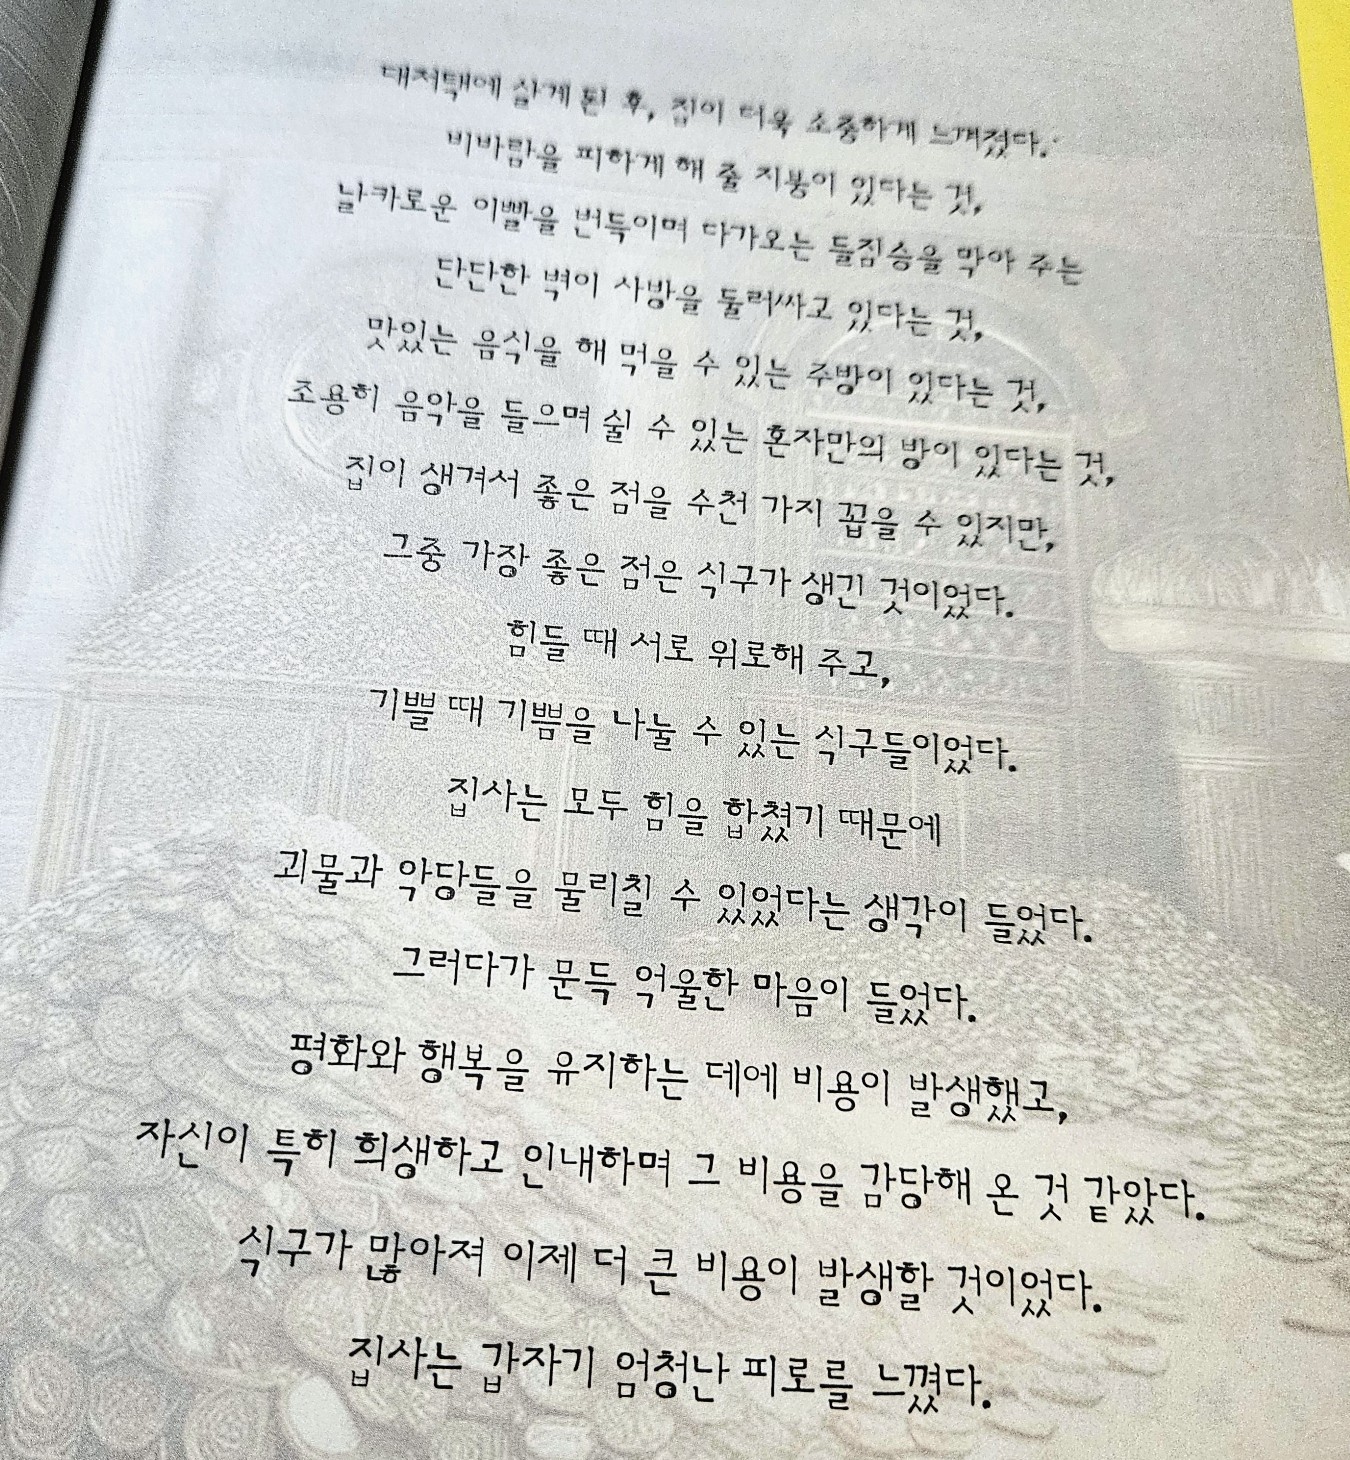 대저택에 살게 된 후, 집이 더욱 소중하게 느껴졌다.
비바람을 피하게 해 줄 지붕이 있다는 것,
날카로운 이빨을 번득이며 다가오는 들짐승을 막아 주는
단단한 벽이 사방을 둘러싸고 있다는 것,
맛있는 음식을 해 먹을 수 있는 주방이 있다는 것,
조용히 음악을 들으며 쉴 수 있는 혼자만의 방이 있다는 것,
집이 생겨서 좋은 점을 수천 가지 꼽을 수 있지만,
그중 가장 좋은 점은 식구가 생긴 것이었다.
힘들 때 서로 위로해 주고,
기쁠 때 기쁨을 나눌 수 있는 식구들이었다.
집사는 모두 힘을 합쳤기 때문에
괴물과 악당들을 물리칠 수 있었다는 생각이 들었다.
그러다가 문득 억울한 마음이 들었다.
평화와 행복을 유지하는 데에 비용이 발생했고,
자신이 특히 희생하고 인내하며 그 비용을 감당해 온 것 같았다.
식구가 많아져 이제 더 큰 비용이 발생할 것이었다.
집사는 갑자기 엄청난 피로를 느꼈다.